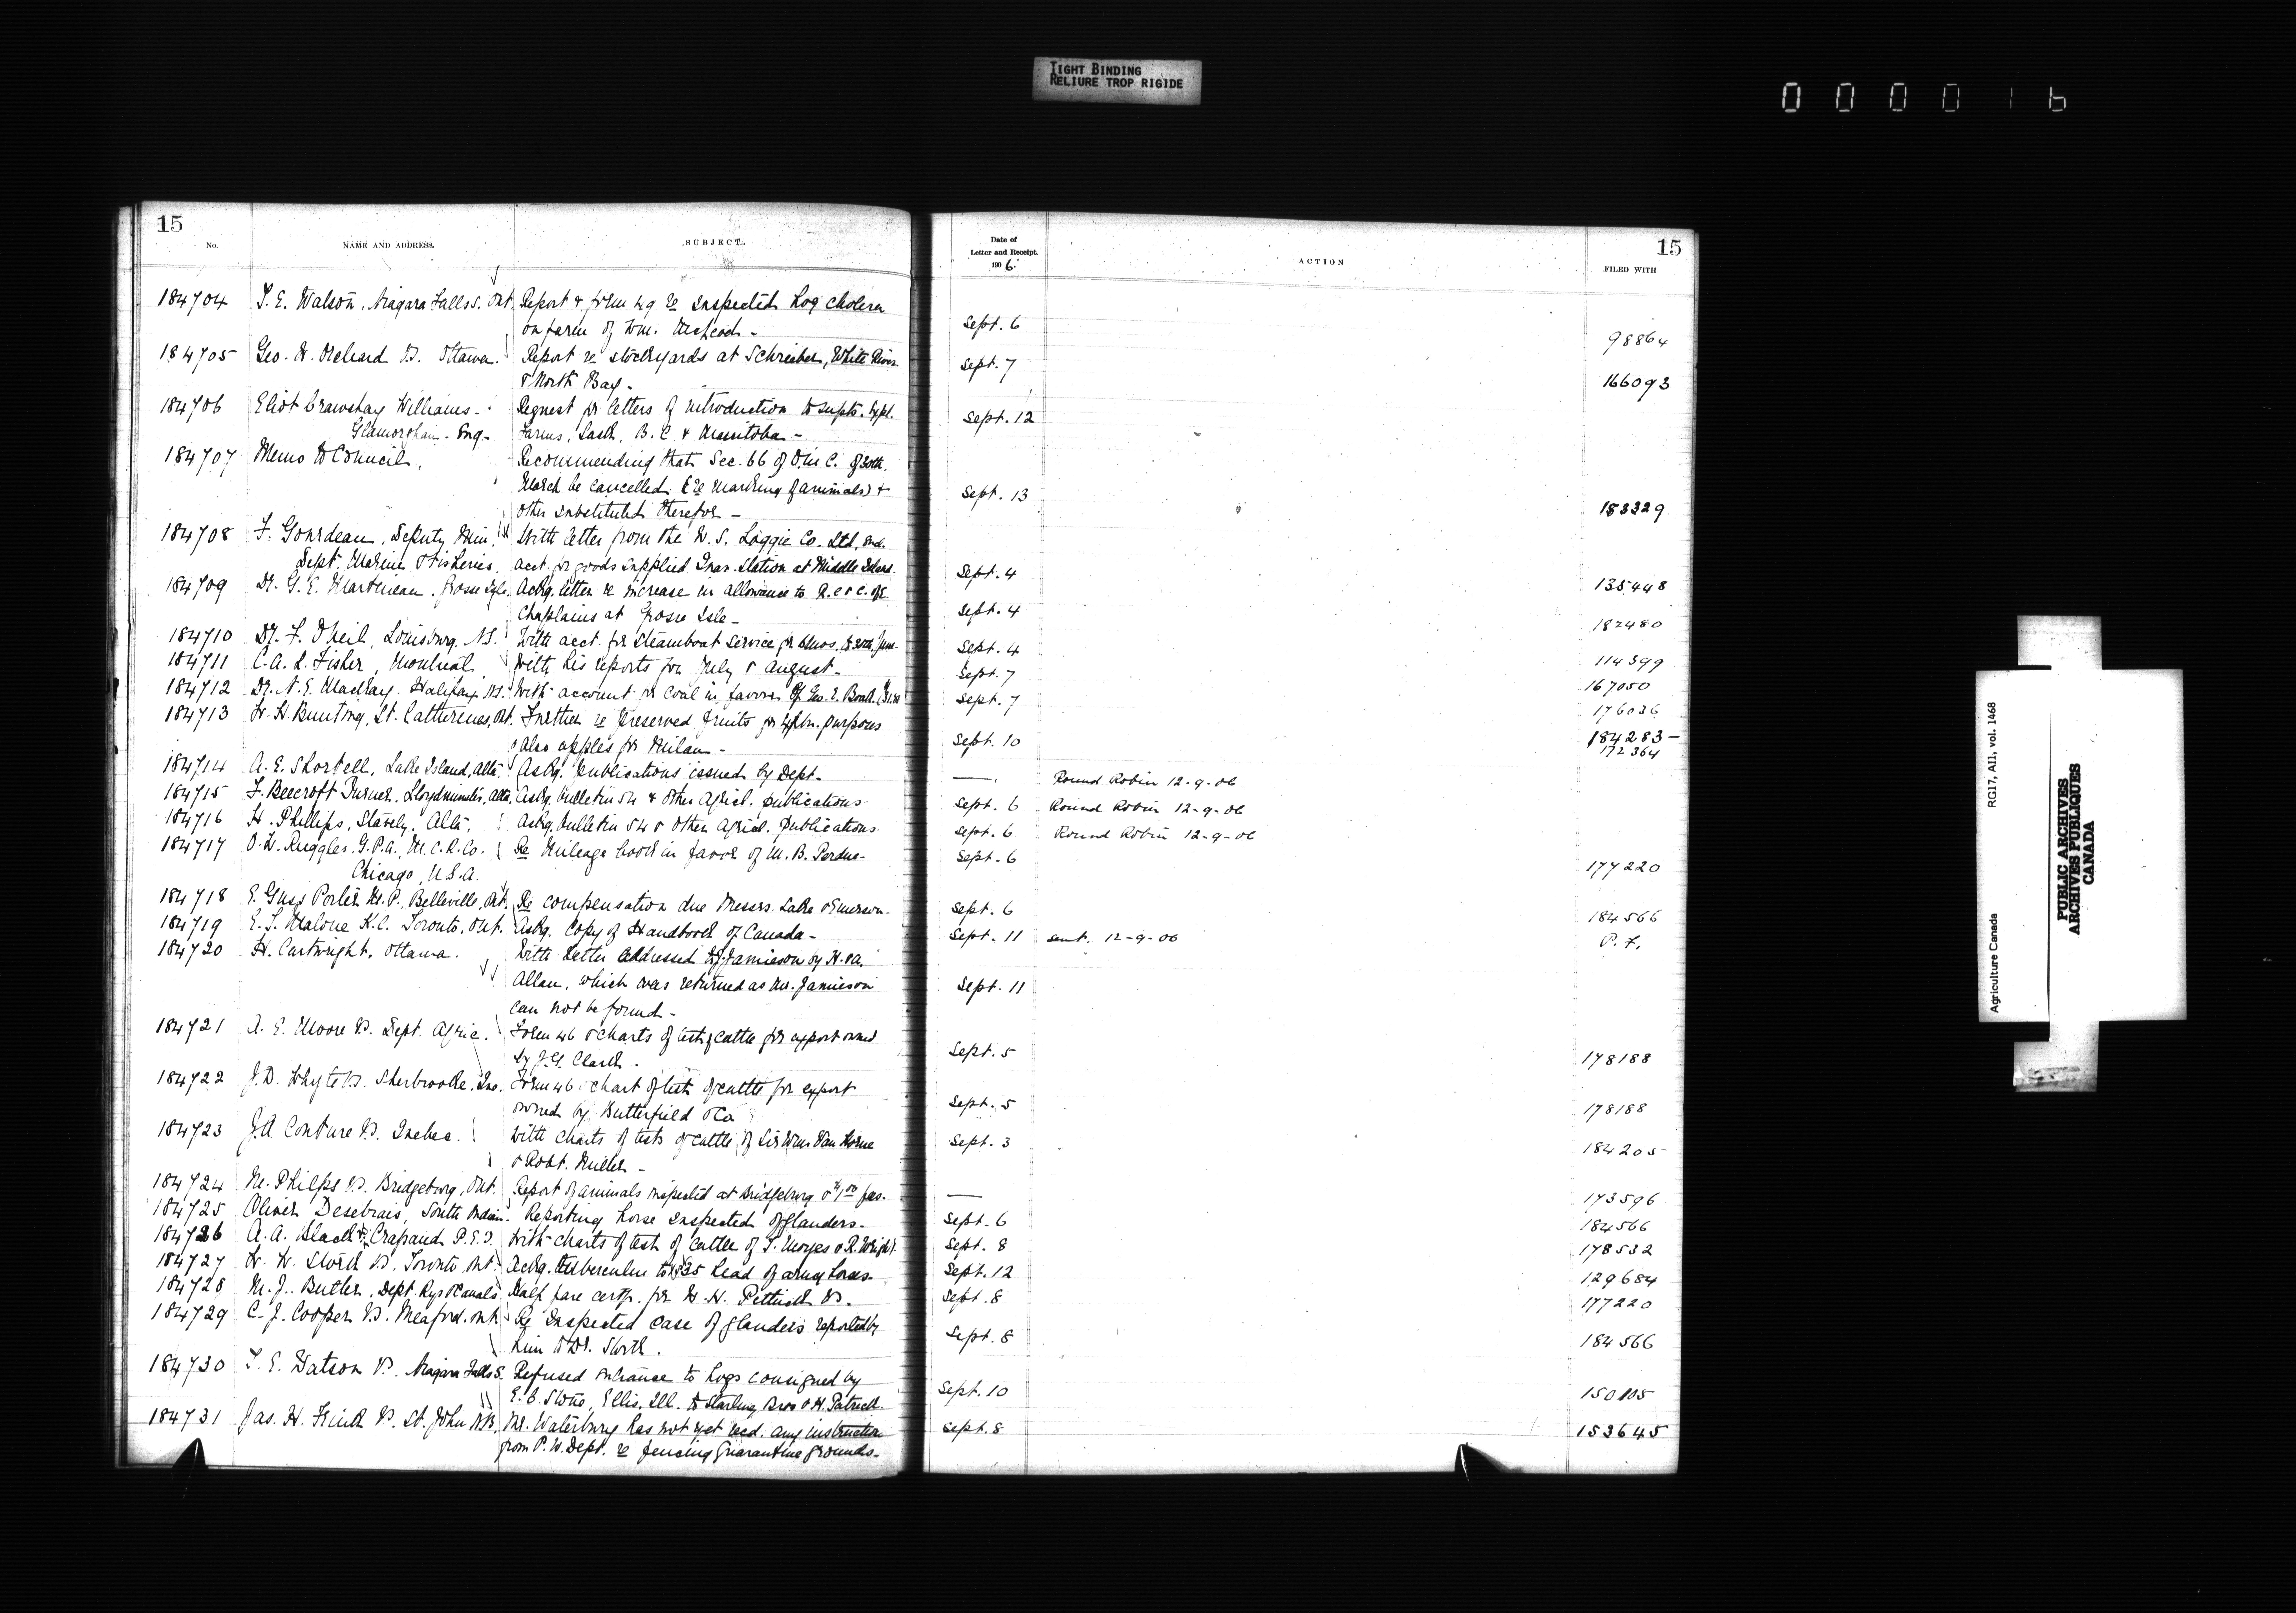 TIGHT BINDING
RELIURE TROP RIGIDE
0 0 0 0 1 6
15
No.
NAME AND ADDRESS.
SUBJECT.
184704 T. E. Watson, Niagara Falls S. Ont. Report & form 49 re suspected hog cholera
on farm of Wm.
184705 Geo. W. Orchard V.S. Ottawa. Report re stockyards at Schreiber, White River
& North Bay -
184706 Eliot Crawshay Williams - Request for letters of introduction to Supts. Expl.
Glamorgan - Eng - Farms, Sask, B.C & Manitoba -
184707 Memo to Council, Recommending that Sec. 66 of O. in C. of 30th
March be cancelled (re marking of animals) &
other substituted therefor -
184708 F. Gourdeau, Deputy Min. With letter from the W. S. Loggie Co. Ltd, encl.
Dept. Marine & Fisheries. acct. for goods supplied Quar. Station at Middle Island.
184709 Dr. G. E. Martineau, Grosse Isle. Ackg. letter re increase in allowance to R.C & C. of E.
Chaplains at Grosse Isle -
184710 Dr. F. O'Neil, Louisburg. N.S. With acct. for Steamboat Service for 6 mos. to 30th June -
184711 C. A. L. Fisher, Montreal. With his reports for July & August -
184712 Dr. N. E. MacKay. Halifax N.S. With account for coal in favor of Geo. E. Boak.
184713 W. H. Bunting, St. Catherines, Ont. Further re preserved fruits for Exhbn. purposes
& also apples for Milan -
184714 A. E. Shortell, Lake Island, Alta. Askg. publications issued by Dept -
184715 F. Beecroft Turner, Lloydminster, Alta. Askg. bulletin 54 & other Agricl. publications -
184716 H. Phillips, Stavely, Alta. Askg. bulletin 54 & other Agricl. publications -
184717 O. W. Ruggles. G.P.A., M.C.R. Co. Re Mileage book in favor of M. B. Perdue -
Chicago, U.S.A.
184718 E. Guss Porter M.P. Belleville, Ont. Re compensation due Messrs. Lake & Emerson -
184719 E. T. Malone K.C. Toronto, Ont. Askg. copy of Handbook of Canada -
184720 H. Cartwright, Ottawa. With letter addressed to J. Jamieson by H. & A.
Allan, which was returned as Mr. Jamieson
can not be found -
184721 A. E. Moore V.S. Dept. Agric. Form 46 & charts of test of cattle for export owned
by J. G. Clark -
184722 J. D. Whyte V.S. Sherbrooke. Que. Form 46 & chart of test of cattle for export
owned by Butterfield & Co
184723 J. A. Couture V.S. Quebec. With charts of tests of cattle of Sir Wm Van Horne
& Robt. Miller -
184724 M. Philps V.S. Bridgeburg, Ont. Report of animals inspected at Bridgeburg
184725 Oliver Desebrais, South Indian. Reporting horse suspected of glanders -
184726 A. A. Black Crapaud P.E.I. With charts of test of cattle of T. Moyes & R. Wright.
184727 W. H. Stork V.S. Toronto Ont. Askg. tuberculin to 35 head of army horses -
184728 M. J. Butler, Dept. Rys & Canals Half fare certf. for W. H. Pettick V.S. -
184729 C. J. Cooper V.S. Meaford. Ont Re suspected case of glanders reported by
him & Dr. Stork.
184730 T. E. Watson V.S. Niagara Falls S. Refused entrance to hogs consigned by
E. C. Stone, Ellis, Ill. to Starling Bros & H. Patrick
184731 Jas. H. Frink V.S. St. John N.B. Mr. Waterbury has not yet recd. any instruction
from P. W. Dept. re fencing Quarantine grounds -
Date of
Letter and Receipt.
1906.
ACTION
15
FILED WITH
Sept. 6 98864
Sept. 7 166093
Sept. 12
Sept. 13 183329
Sept. 4 135448
Sept. 4 182480
Sept. 4 114399
Sept. 7 167050
Sept. 7 176036
Sept. 10 184283 -
172364
— Round Robin 12-9-06
Sept. 6 Round Robin 12-9-06
Sept. 6 Round Robin 12-9-06
Sept. 6 177220
Sept. 6 184566
Sept. 11 sent. 12-9-06 P. F.
Sept. 11
Sept. 5 178188
Sept. 5 178188
Sept. 3 184205
— 173596
Sept. 6 184566
Sept. 8 178532
Sept. 12 129684
Sept. 8 177220
Sept. 8 184566
Sept. 10 150105
Sept. 8 153645
Agriculture Canada
RG17, AII, vol. 1468
PUBLIC ARCHIVES
ARCHIVES PUBLIQUES
CANADA